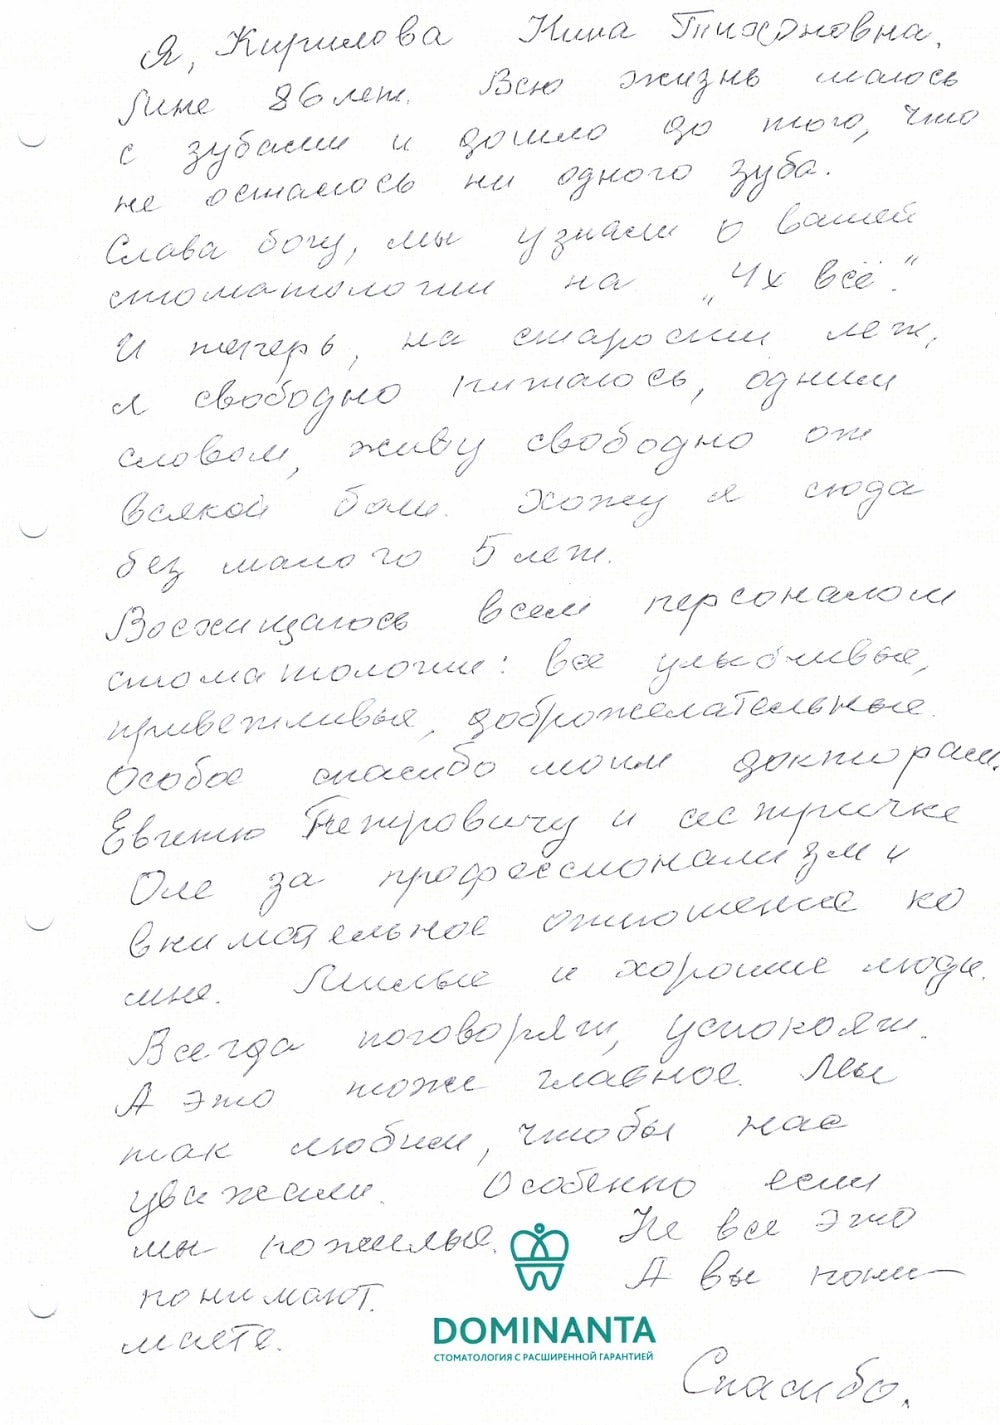 Я, Кирилова Нина Тихоновна.
Мне 86 лет. Всю жизнь маюсь
с зубами и дошло до того, что
не осталось ни одного зуба.
Слава богу, мы узнали о вашей
стоматологии на „Чх всё“.
И теперь, на старости лет,
я свободно питаюсь, одним
словом, живу свободно от
всякой боли. Хожу я сюда
без малого 5 лет.
Восхищаюсь всем персоналом
стоматологии: все улыбчивые,
приветливые, доброжелательные.
Особое спасибо моим докторам.
Евгению Петровичу и сестричке
Оле за профессионализм и
внимательное отношение ко
мне. Милые и хорошие люди.
Всегда поговорят, успокоят.
А это тоже главное. Мы
так любим, чтобы нас
уважали. Особенно если
мы пожилые. Не все это
понимают. А вы пони-
маете.
DOMINANTA
СТОМАТОЛОГИЯ С РАСШИРЕННОЙ ГАРАНТИЕЙ
Спасибо.